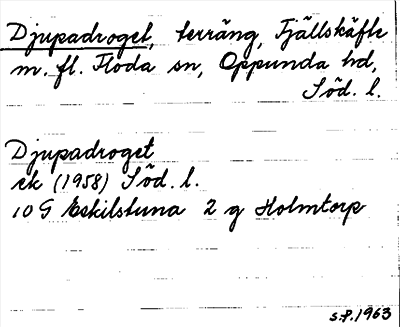 Djupadroget, terräng, Fjällskäfte
m. fl. Floda sn, Oppunda hd,
Söd. l.
Djupadroget
ek (1958) Söd. l.
10 G Eskilstuna 2 g Holmtorp
S.P. 1963